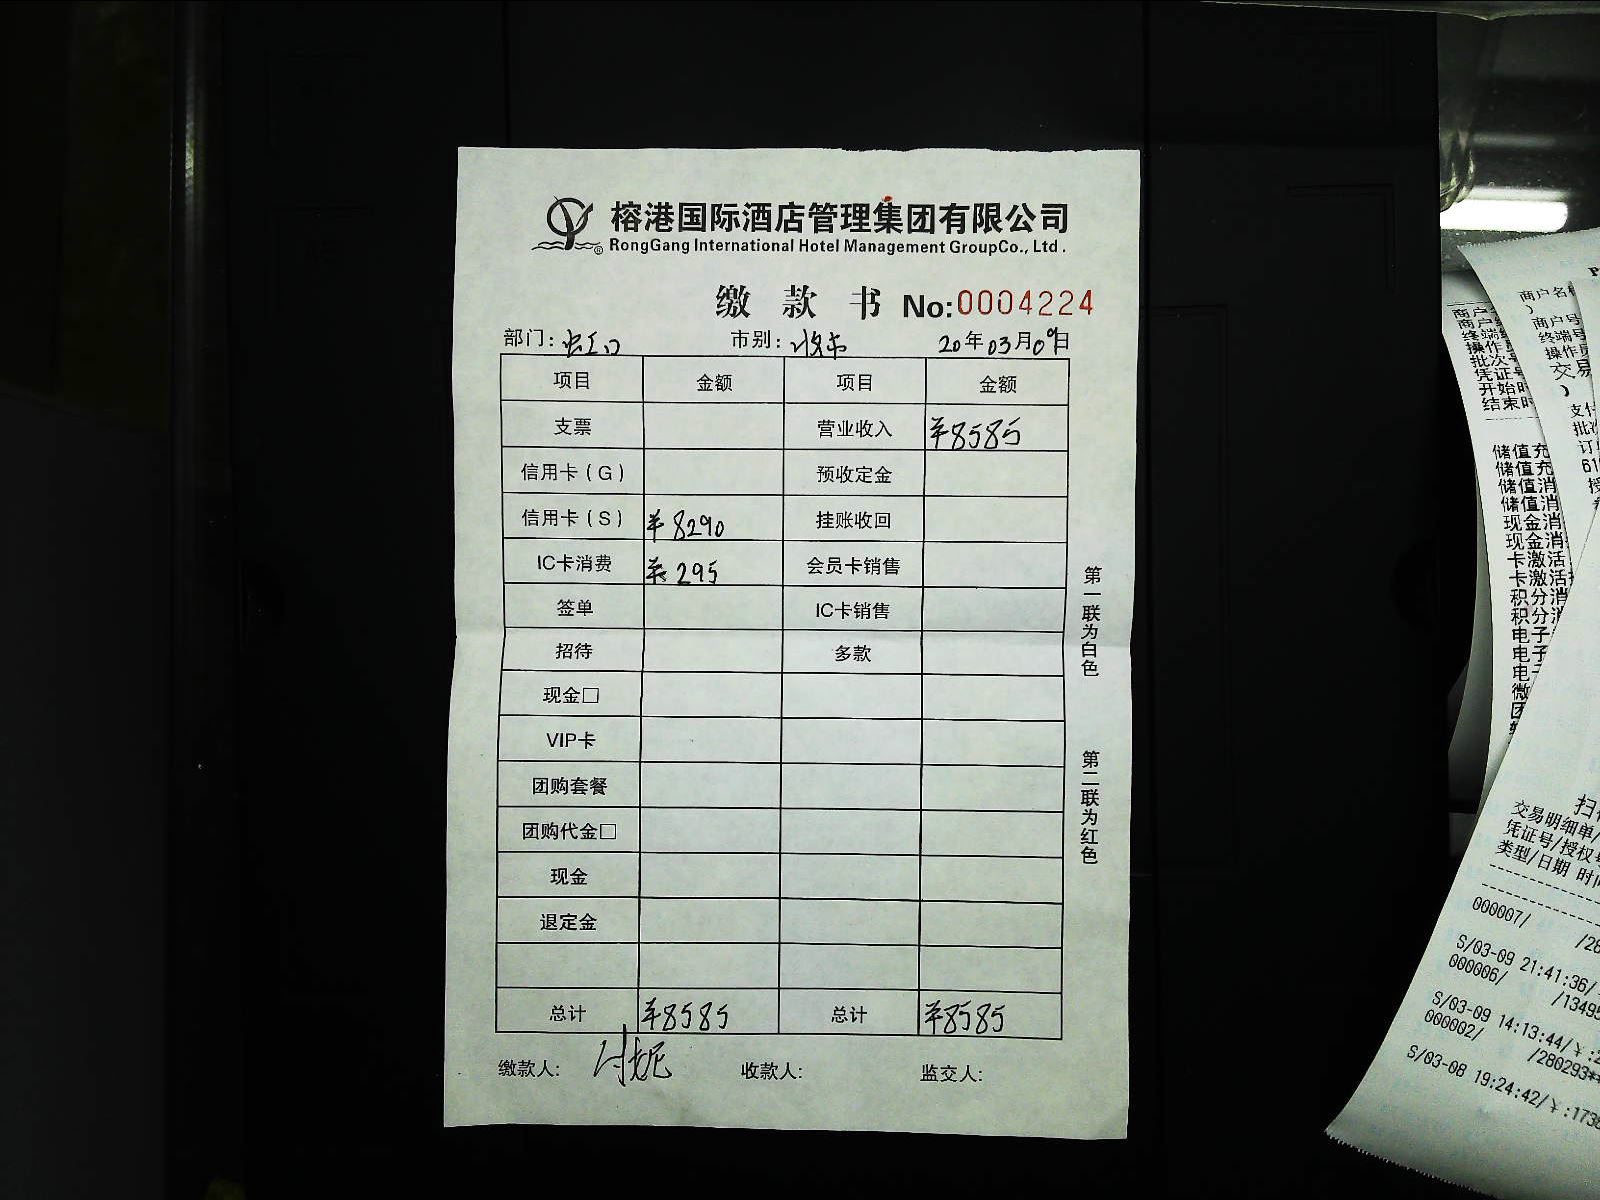 榕港国际酒店管理集团有限公司
RongGang International Hotel Management GroupCo., Ltd.
缴 款 书 No:0004224
部门: 虹口 市别: 收市 20年03月09日
项目 金额 项目 金额
支票 营业收入 ¥8585
信用卡(G) 预收定金
信用卡(S) ¥8290 挂账收回
IC卡消费 ¥295 会员卡销售
签单 IC卡销售
招待 多款
现金□
VIP卡
团购套餐
团购代金□
现金
退定金
总计 ¥8585 总计 ¥8585
缴款人: 收款人: 监交人:
第一联为白色
第二联为红色
商户
商户
终端
操作
批次
凭证号
开始时
结束时
储值充
储值充
储值消
储值消
现金消
现金消
卡激活
卡激活
积分消
积分消
电子
电子
电子
微
团
商户名
商户号
终端号
操作员
交易
支付
订
交易明细单/
凭证号/授权
类型/日期 时间
000007/
S/03-09 21:41:36/
000006/ /13495
S/03-09 14:13:44/¥:2
000002/ /280293**
S/03-08 19:24:42/¥:173